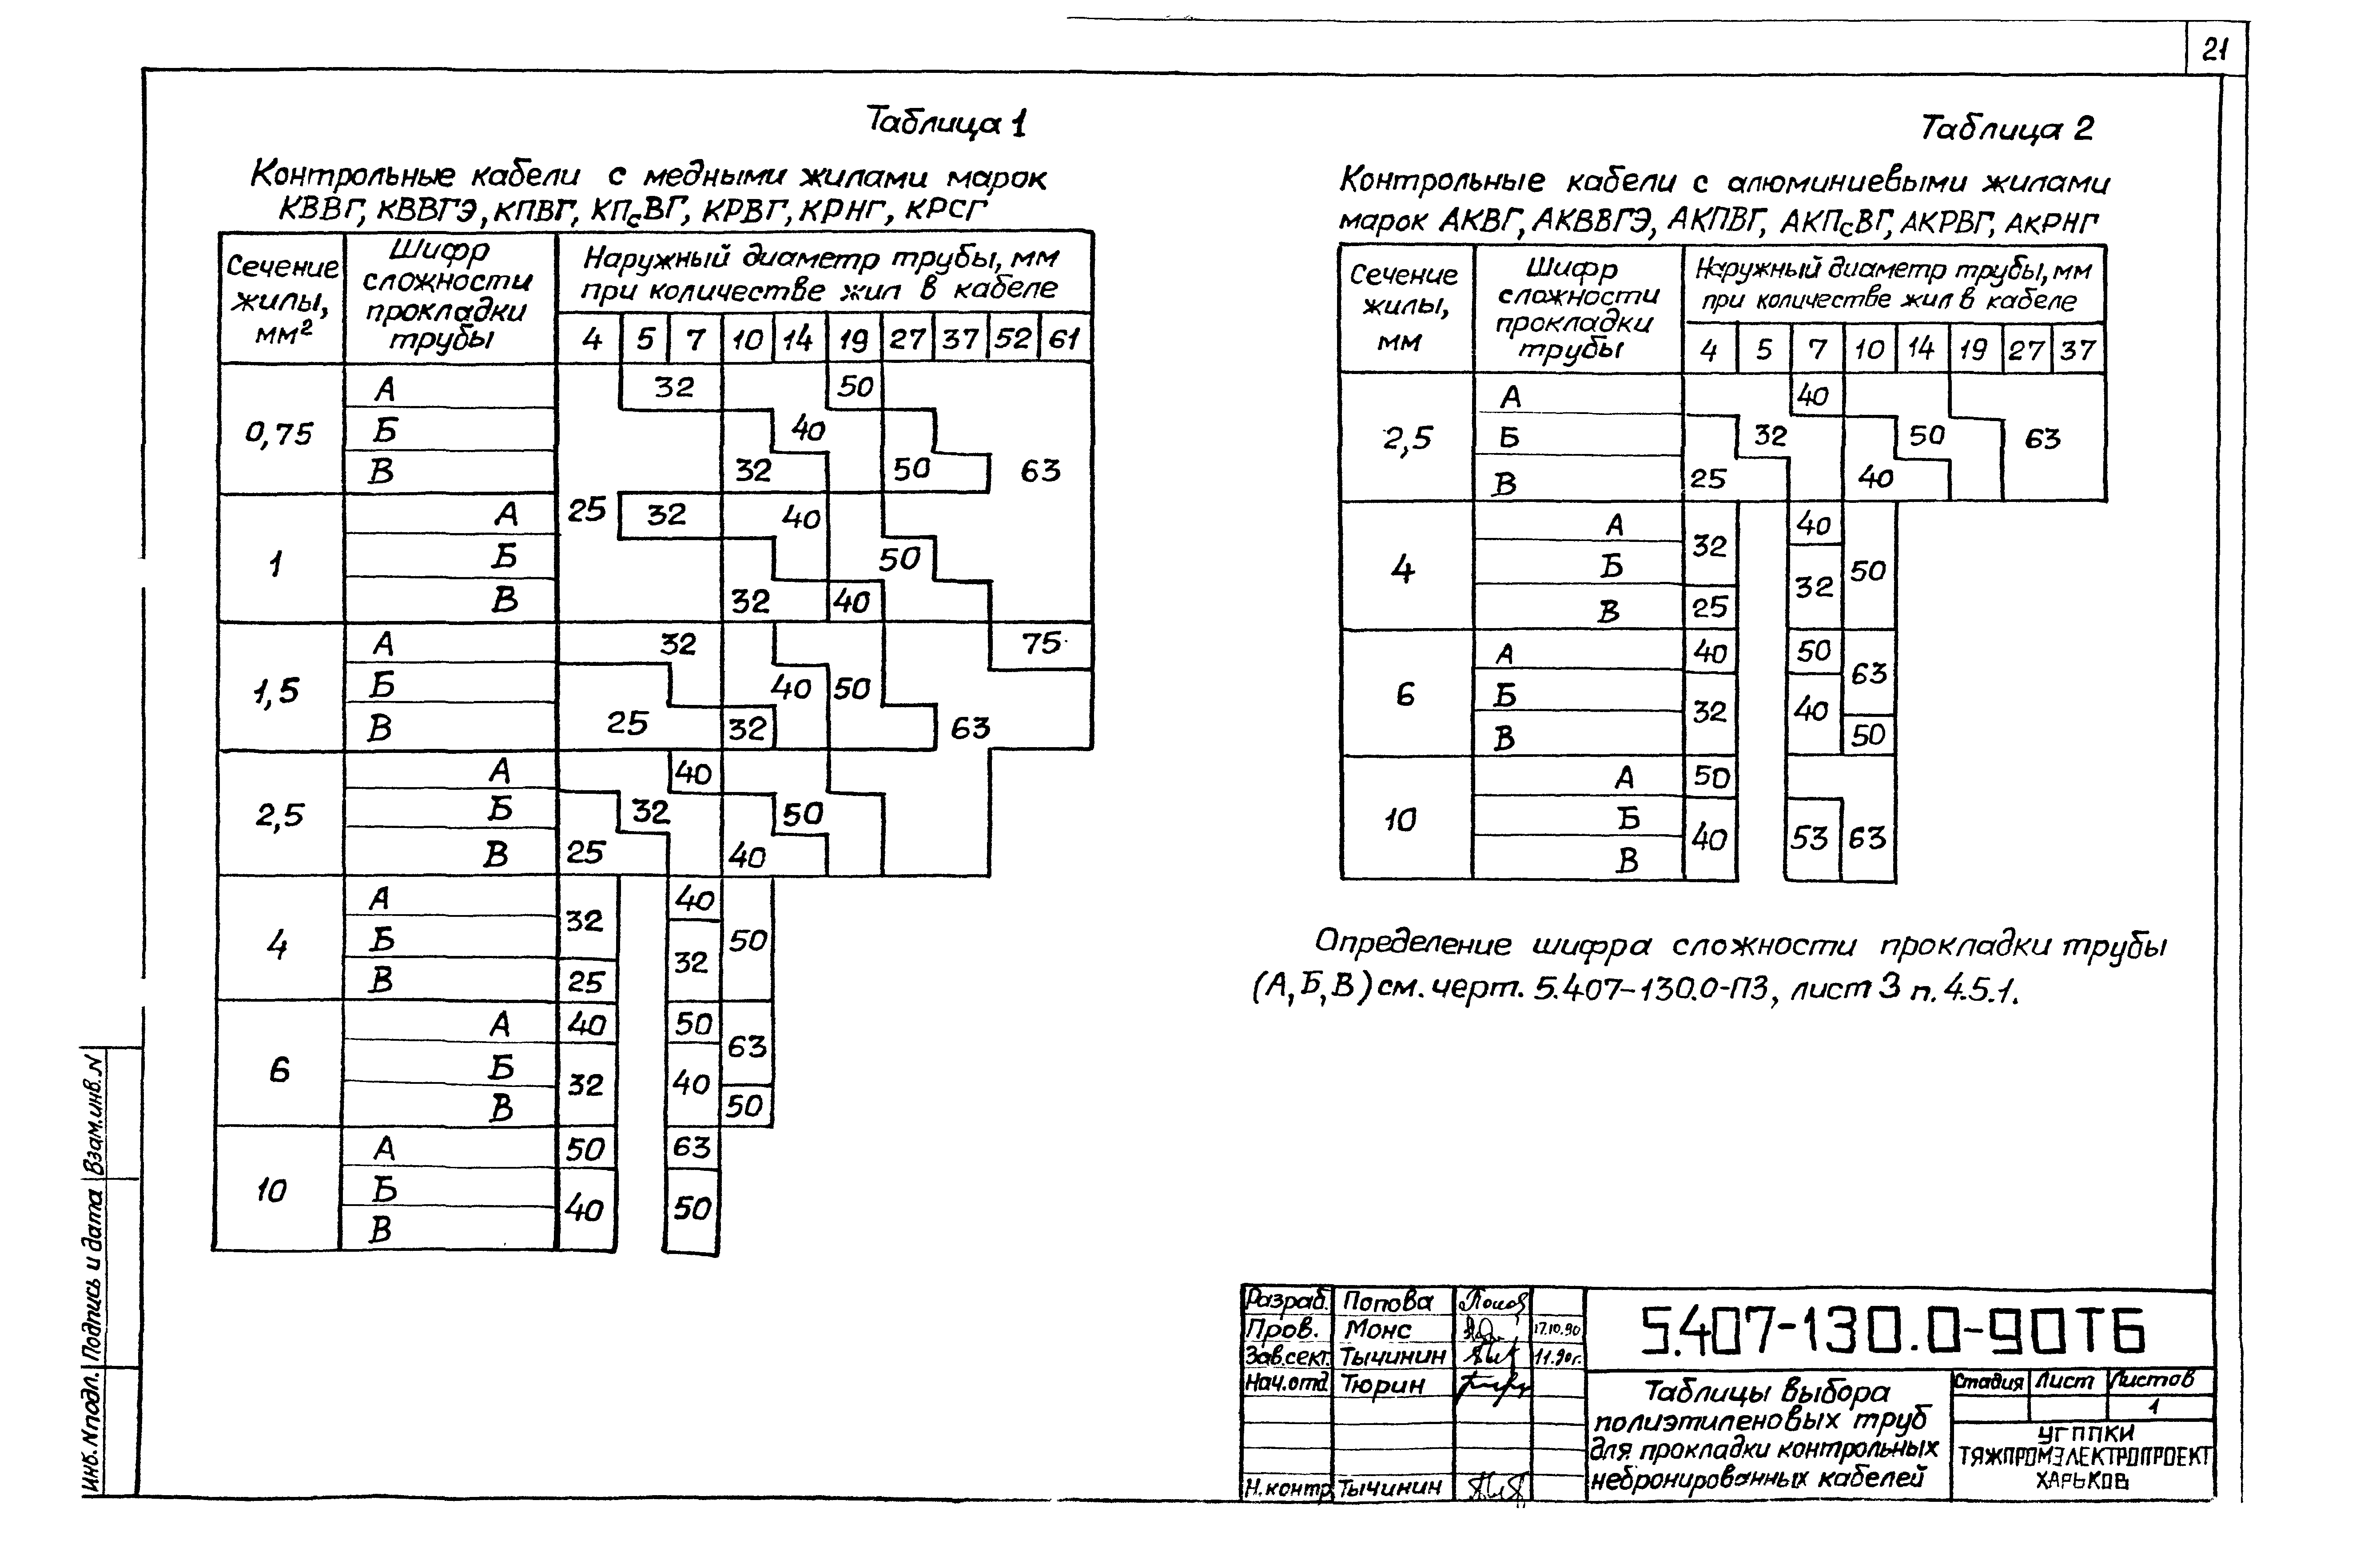 21
Таблица 1
Контрольные кабели с медными жилами марок
КВВГ, КВВГЭ, КПВГ, КПсВГ, КРВГ, КРНГ, КРСГ
Сечение жилы, мм2
Шифр сложности прокладки трубы
Наружный диаметр трубы, мм
при количестве жил в кабеле
4 5 7 10 14 19 27 37 52 61
А 32 50
0,75 Б 40
В 32 50 63
А 25 32 40
1 Б 50
В 32 40
А 32 75
1,5 Б 40 50
В 25 32 63
А 40
2,5 Б 32 50
В 25 40
А 32 40
4 Б 50
В 25 32
А 40 50
6 Б 63
32 40
В 50
А 50 63
10 Б
40 50
В
Таблица 2
Контрольные кабели с алюминиевыми жилами
марок АКВГ, АКВВГЭ, АКПВГ, АКПсВГ, АКРВГ, АКРНГ
Сечение жилы, мм
Шифр сложности прокладки трубы
Наружный диаметр трубы, мм
при количестве жил в кабеле
4 5 7 10 14 19 27 37
А 40
2,5 Б 32 50 63
В 25 40
А 32 40
4 Б 32 50
В 25
А 40 50
6 Б 63
32 40
В 50
А 50
10 Б
40 53 63
В
Определение шифра сложности прокладки трубы
(А, Б, В) см. черт. 5.407-130.0-ПЗ, лист 3 п. 4.5.1.
Инв. N подл. Подпись и дата Взам. инв. N
Разраб. Попова
Пров. Монс 17.10.90
Зав.сект. Тычинин 11.90г.
Нач.отд Тюрин
Н.контр Тычинин
5.407-130.0-90ТБ
Таблицы выбора
полиэтиленовых труб
для прокладки контрольных
небронированных кабелей
Стадия Лист Листов
1
УГППКИ
ТЯЖПРОМЭЛЕКТРОПРОЕКТ
ХАРЬКОВ